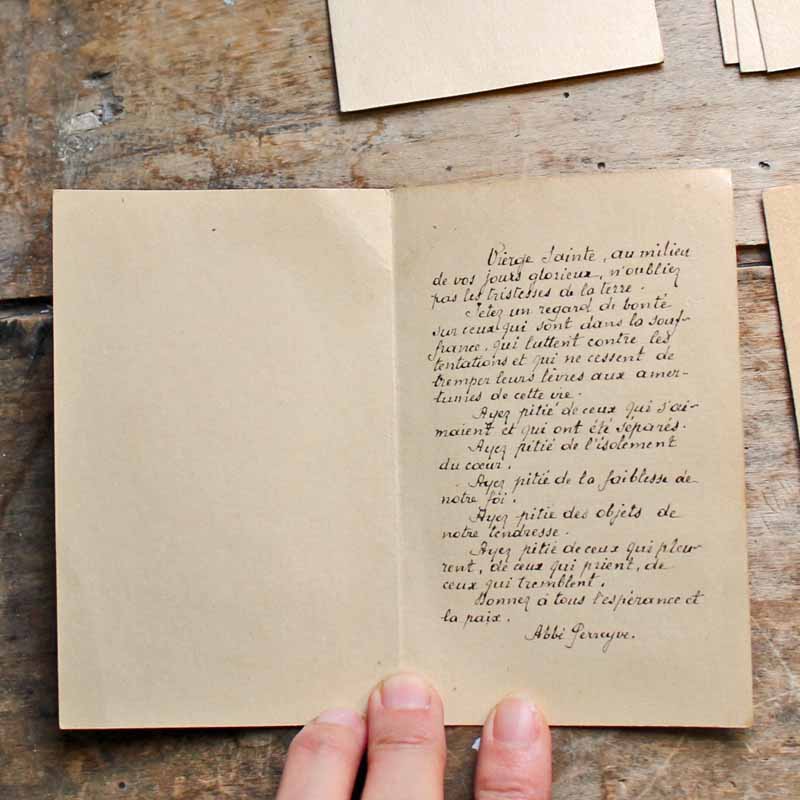 Vierge Sainte, au milieu
de vos jours glorieux, n'oubliez
pas les tristesses de la terre.
Jetez un regard de bonté
sur ceux qui sont dans la souf-
france, qui luttent contre les
tentations et qui ne cessent de
tremper leurs lèvres aux amer-
tumes de cette vie.
Ayez pitié de ceux qui s'ai-
maient et qui ont été séparés.
Ayez pitié de l'isolement
du cœur.
Ayez pitié de la faiblesse de
notre foi.
Ayez pitié des objets de
notre tendresse.
Ayez pitié de ceux qui pleu-
rent, de ceux qui prient, de
ceux qui tremblent.
Donnez à tous l'espérance et
la paix.
Abbé Perreyve.